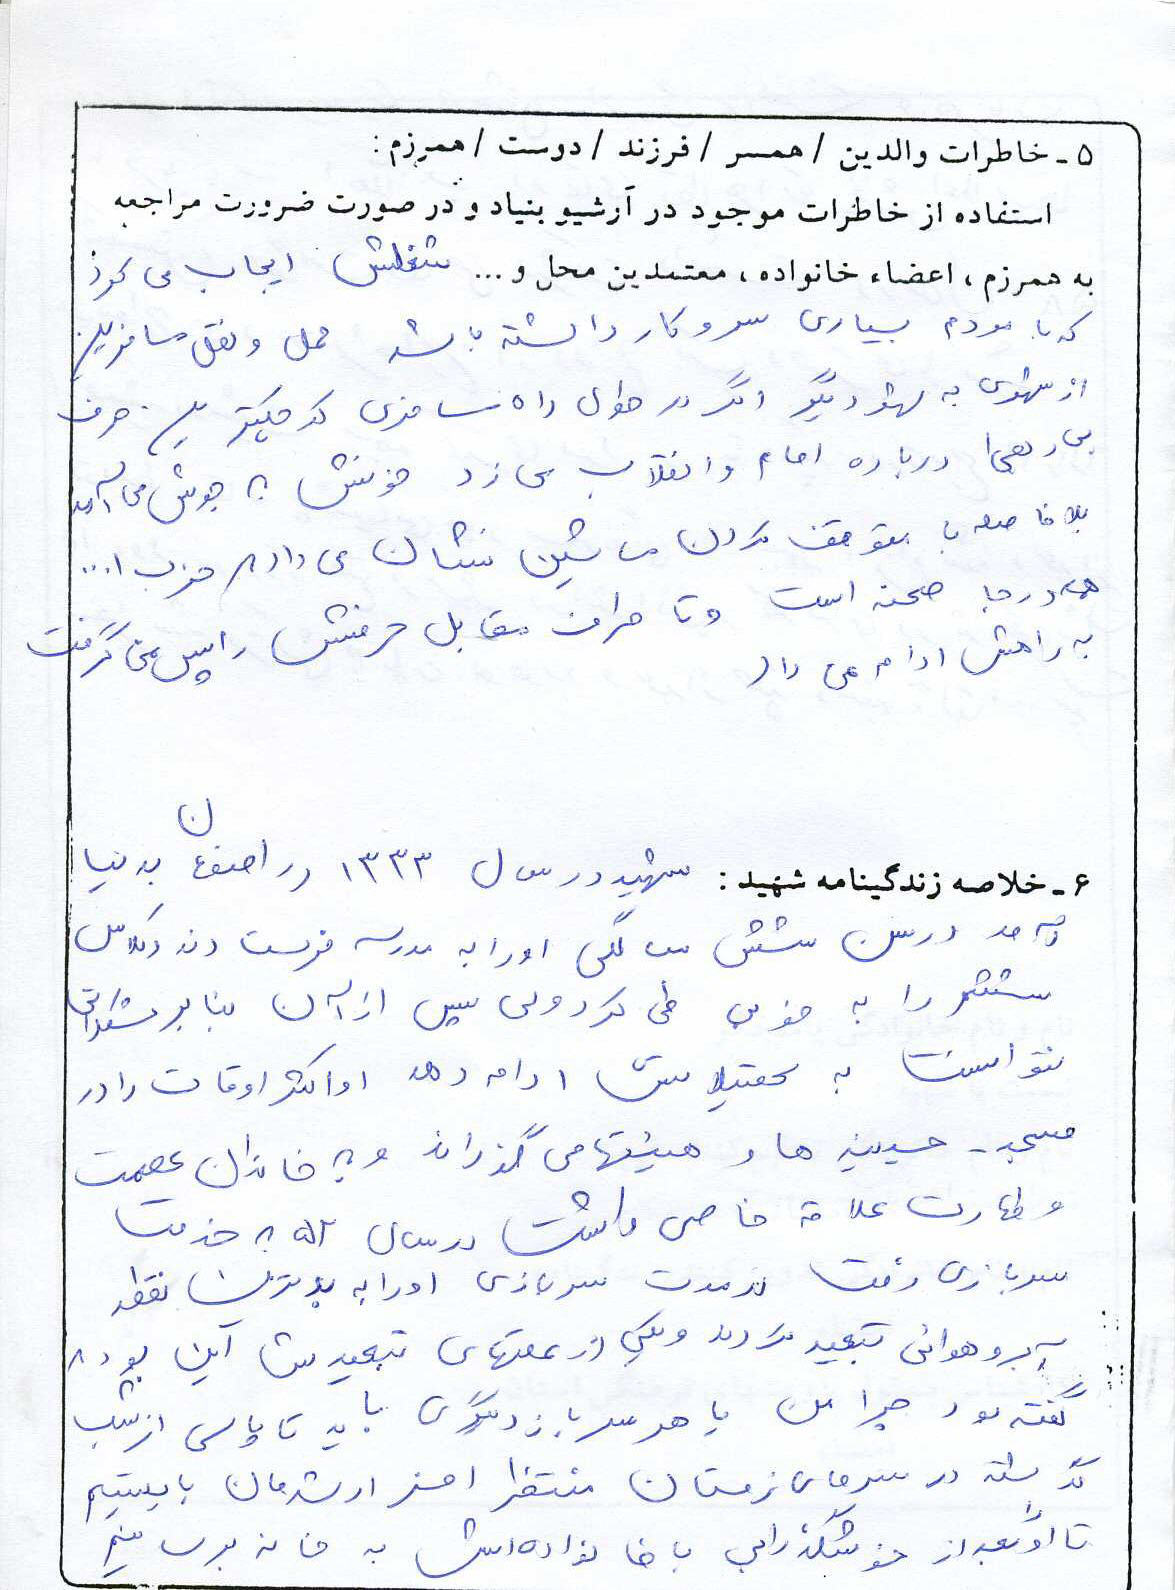 ۵ - خاطرات والدین / همسر / فرزند / دوست / همرزم :
استفاده از خاطرات موجود در آرشیو بنیاد و در صورت ضرورت مراجعه
به همرزم ، اعضاء خانواده ، معتمدین محل و ... شغلش ایجاب می کرد
که با مردم بسیاری سر و کار داشته باشد حمل و نقل مسافرین
از شهری به شهر دیگر اگر در طول راه مسافری کوچکترین حرف
بی ربطی درباره امام و انقلاب می زد خونش به جوش می آمد
بلافاصله با متوقف کردن ماشین نشان می داد که حزب ا...
همه در صحنه است و تا طرف مقابل حرفش را پس نمی گرفت
به راهش ادامه نمی داد
۶ - خلاصه زندگینامه شهید : شهید در سال ۱۳۳۳ در اصفهان به دنیا
آمد در سن شش سالگی او را به مدرسه فرستادند و کلاس
ششم را به خوبی طی کرد ولی پس از آن بنا بر مشکلاتی
نتوانست به تحصیلاتش ادامه دهد او اکثر اوقات را در
مسجد - حسینیه ها و هیئتها می گذراند و به خاندان عصمت
و طهارت علاقه خاصی داشت در سال ۵۲ به خدمت
سربازی رفت در مدت سربازی او را به بدترین نقطه
آب و هوائی تبعید کردند و یکی از علتهای تبعیدش این بود که
گفته بود چرا من یا هر سرباز دیگری باید تا پاسی از شب
گذشته در سرمای زمستان منتظر افسر ارشدمان بایستیم
تا او بعد از خوشگذرانی با خانواده اش به خانه برسانیم